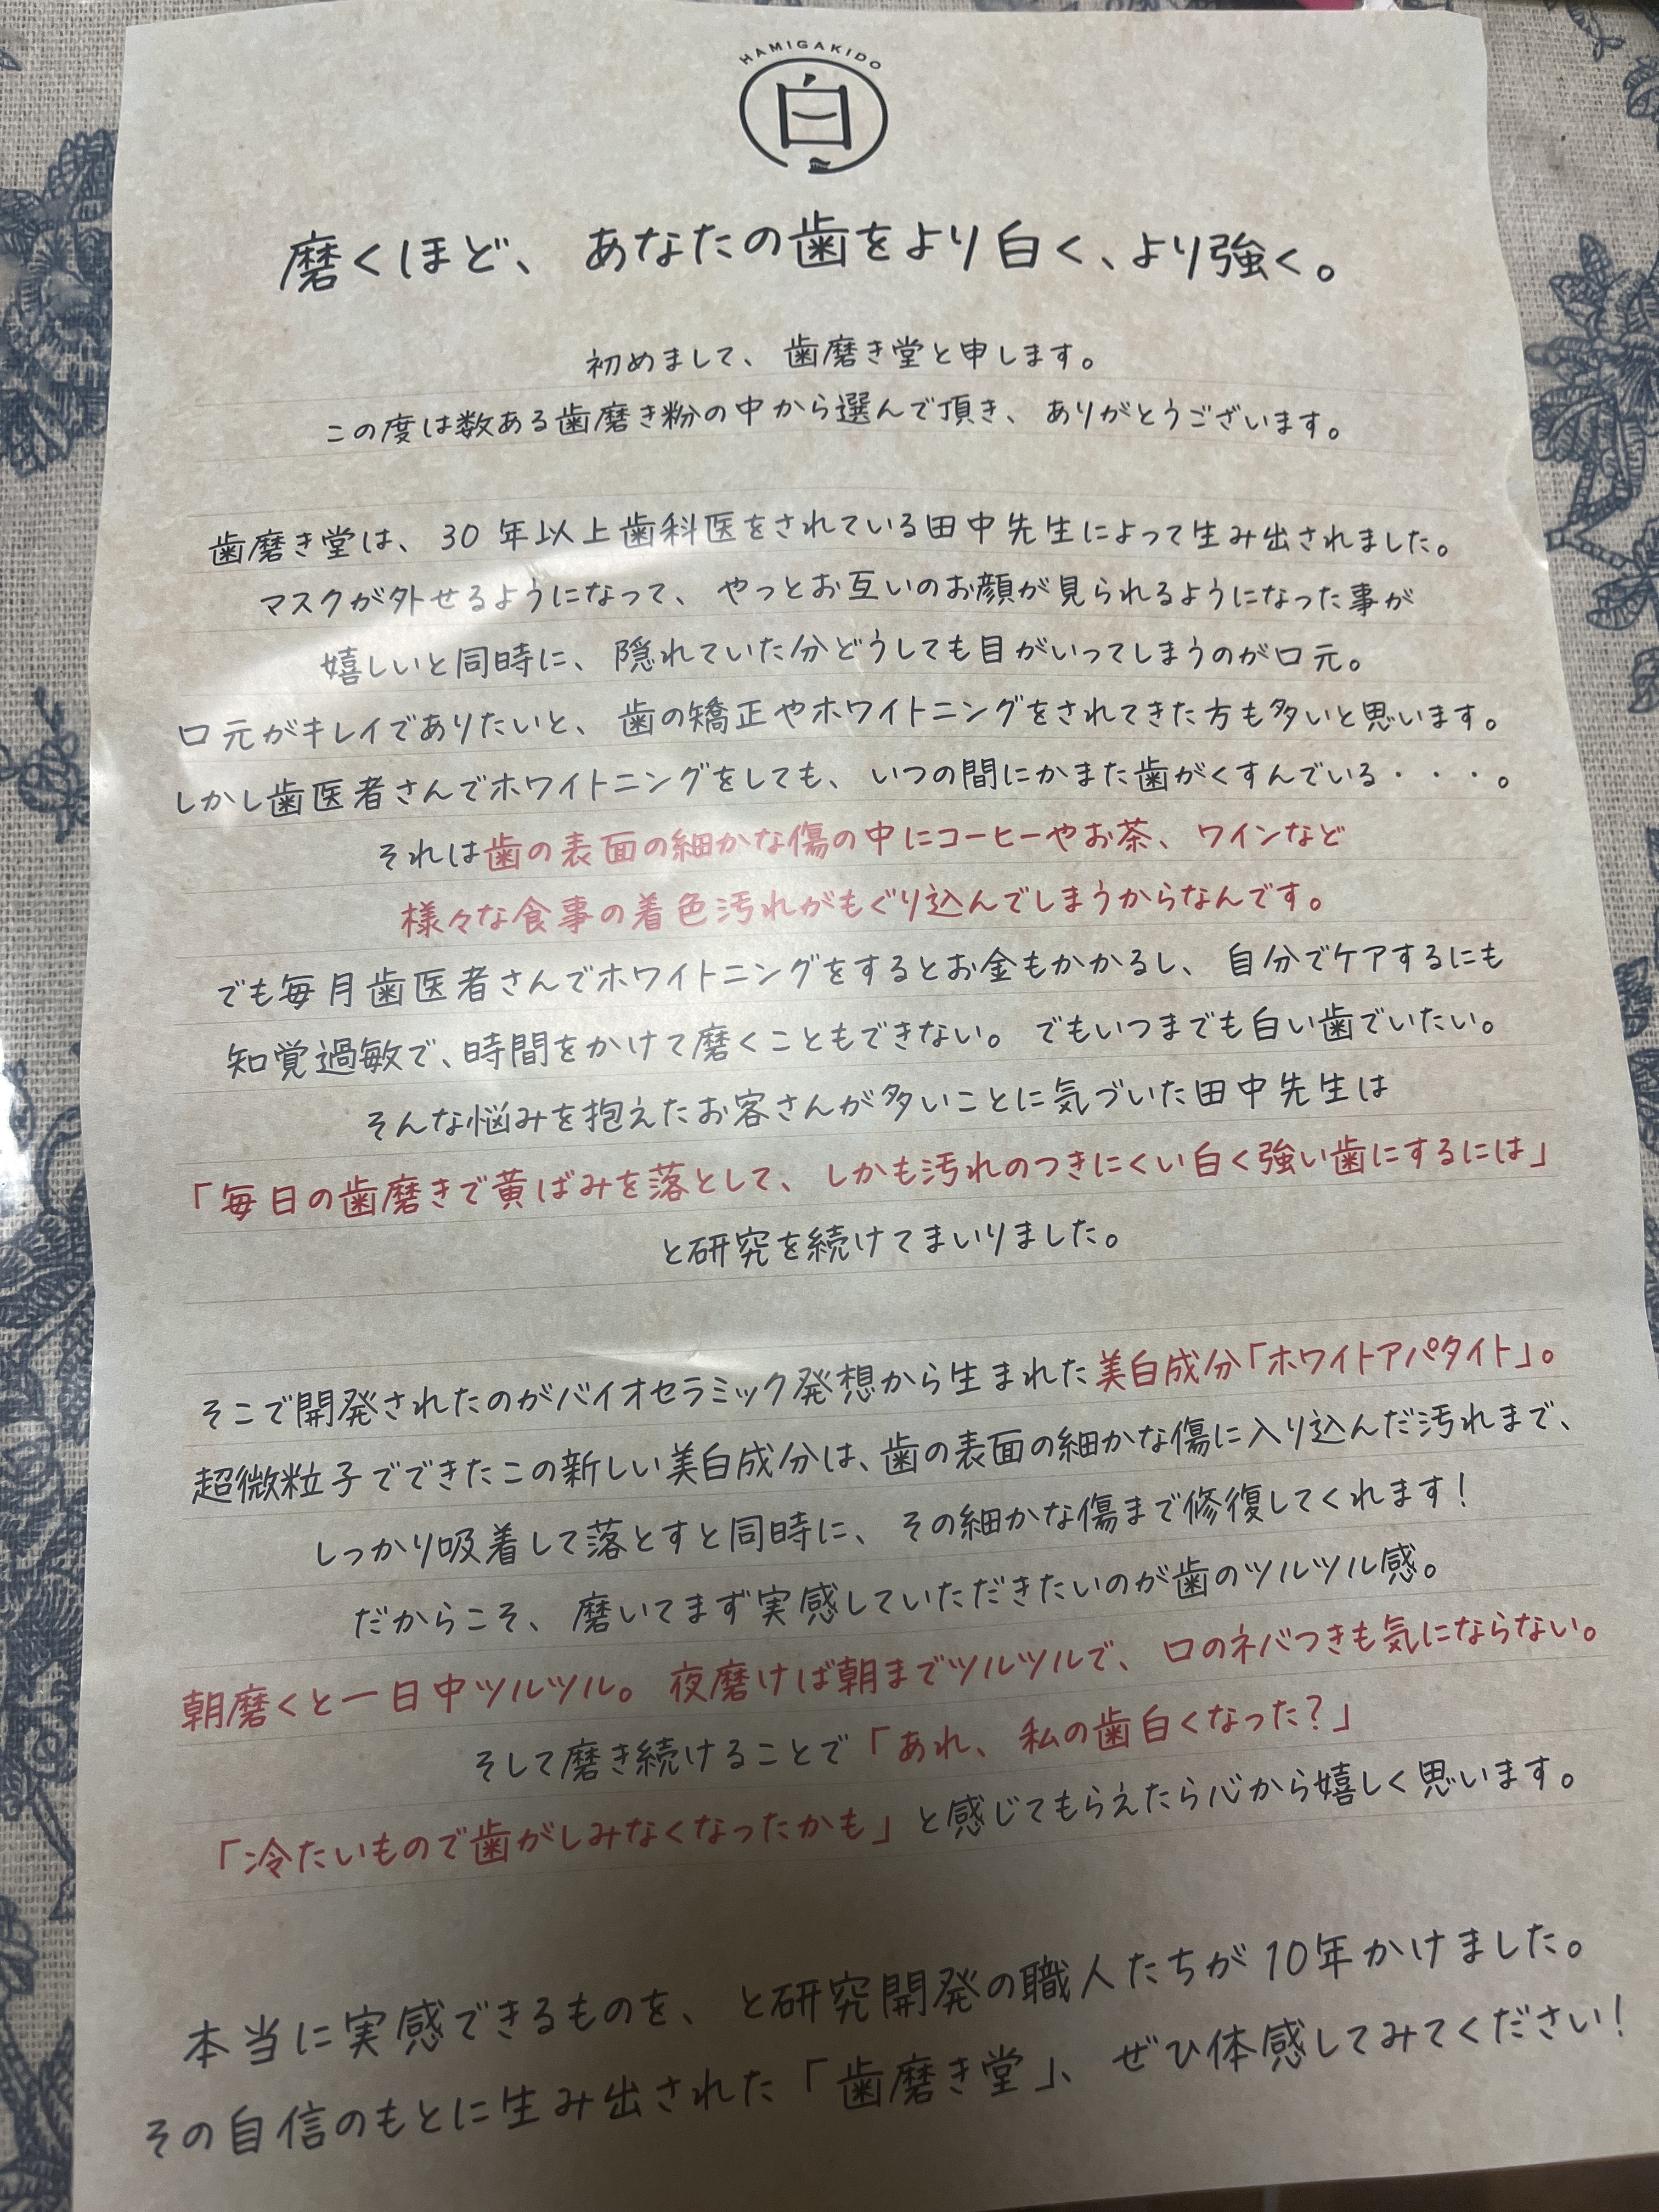 HAMIGAKIDO
白
磨くほど、あなたの歯をより白く、より強く。
初めまして、歯磨き堂と申します。
この度は数ある歯磨き粉の中から選んで頂き、ありがとうございます。
歯磨き堂は、30年以上歯科医をされている田中先生によって生み出されました。
マスクが外せるようになって、やっとお互いのお顔が見られるようになった事が
嬉しいと同時に、隠れていた分どうしても目がいってしまうのが口元。
口元がキレイでありたいと、歯の矯正やホワイトニングをされてきた方も多いと思います。
しかし歯医者さんでホワイトニングをしても、いつの間にかまた歯がくすんでいる・・・。
それは歯の表面の細かな傷の中にコーヒーやお茶、ワインなど
様々な食事の着色汚れがもぐり込んでしまうからなんです。
でも毎月歯医者さんでホワイトニングをするとお金もかかるし、自分でケアするにも
知覚過敏で、時間をかけて磨くこともできない。でもいつまでも白い歯でいたい。
そんな悩みを抱えたお客さんが多いことに気づいた田中先生は
「毎日の歯磨きで黄ばみを落として、しかも汚れのつきにくい白く強い歯にするには」
と研究を続けてまいりました。
そこで開発されたのがバイオセラミック発想から生まれた美白成分「ホワイトアパタイト」。
超微粒子でできたこの新しい美白成分は、歯の表面の細かな傷に入り込んだ汚れまで、
しっかり吸着して落とすと同時に、その細かな傷まで修復してくれます!
だからこそ、磨いてまず実感していただきたいのが歯のツルツル感。
朝磨くと一日中ツルツル。夜磨けば朝までツルツルで、口のネバつきも気にならない。
そして磨き続けることで「あれ、私の歯白くなった?」
「冷たいもので歯がしみなくなったかも」と感じてもらえたら心から嬉しく思います。
本当に実感できるものを、と研究開発の職人たちが10年かけました。
その自信のもとに生み出された「歯磨き堂」、ぜひ体感してみてください!